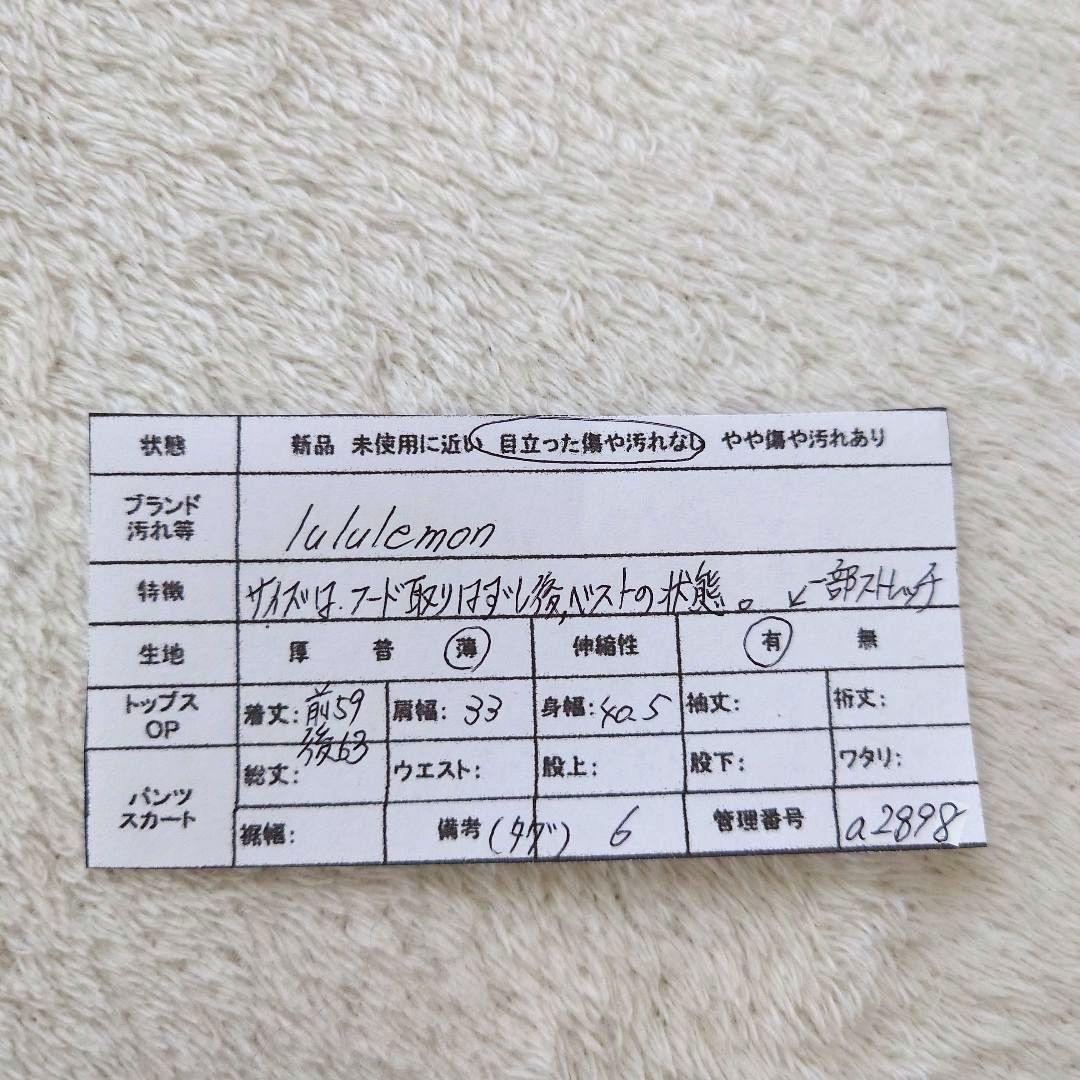 状態 新品 未使用に近い 目立った傷や汚れなし やや傷や汚れあり
ブランド
汚れ等
lululemon
特徴 サイズは、フード取りはずし後、ベストの状態。 ↙一部ストレッチ
生地 厚 普 薄 伸縮性 有 無
トップス
OP
着丈: 前59 肩幅: 33 身幅: 40.5 袖丈: 裄丈:
後63
パンツ
スカート
総丈: ウエスト: 股上: 股下: ワタリ:
裾幅: 備考 (タグ) 6 管理番号 a2898